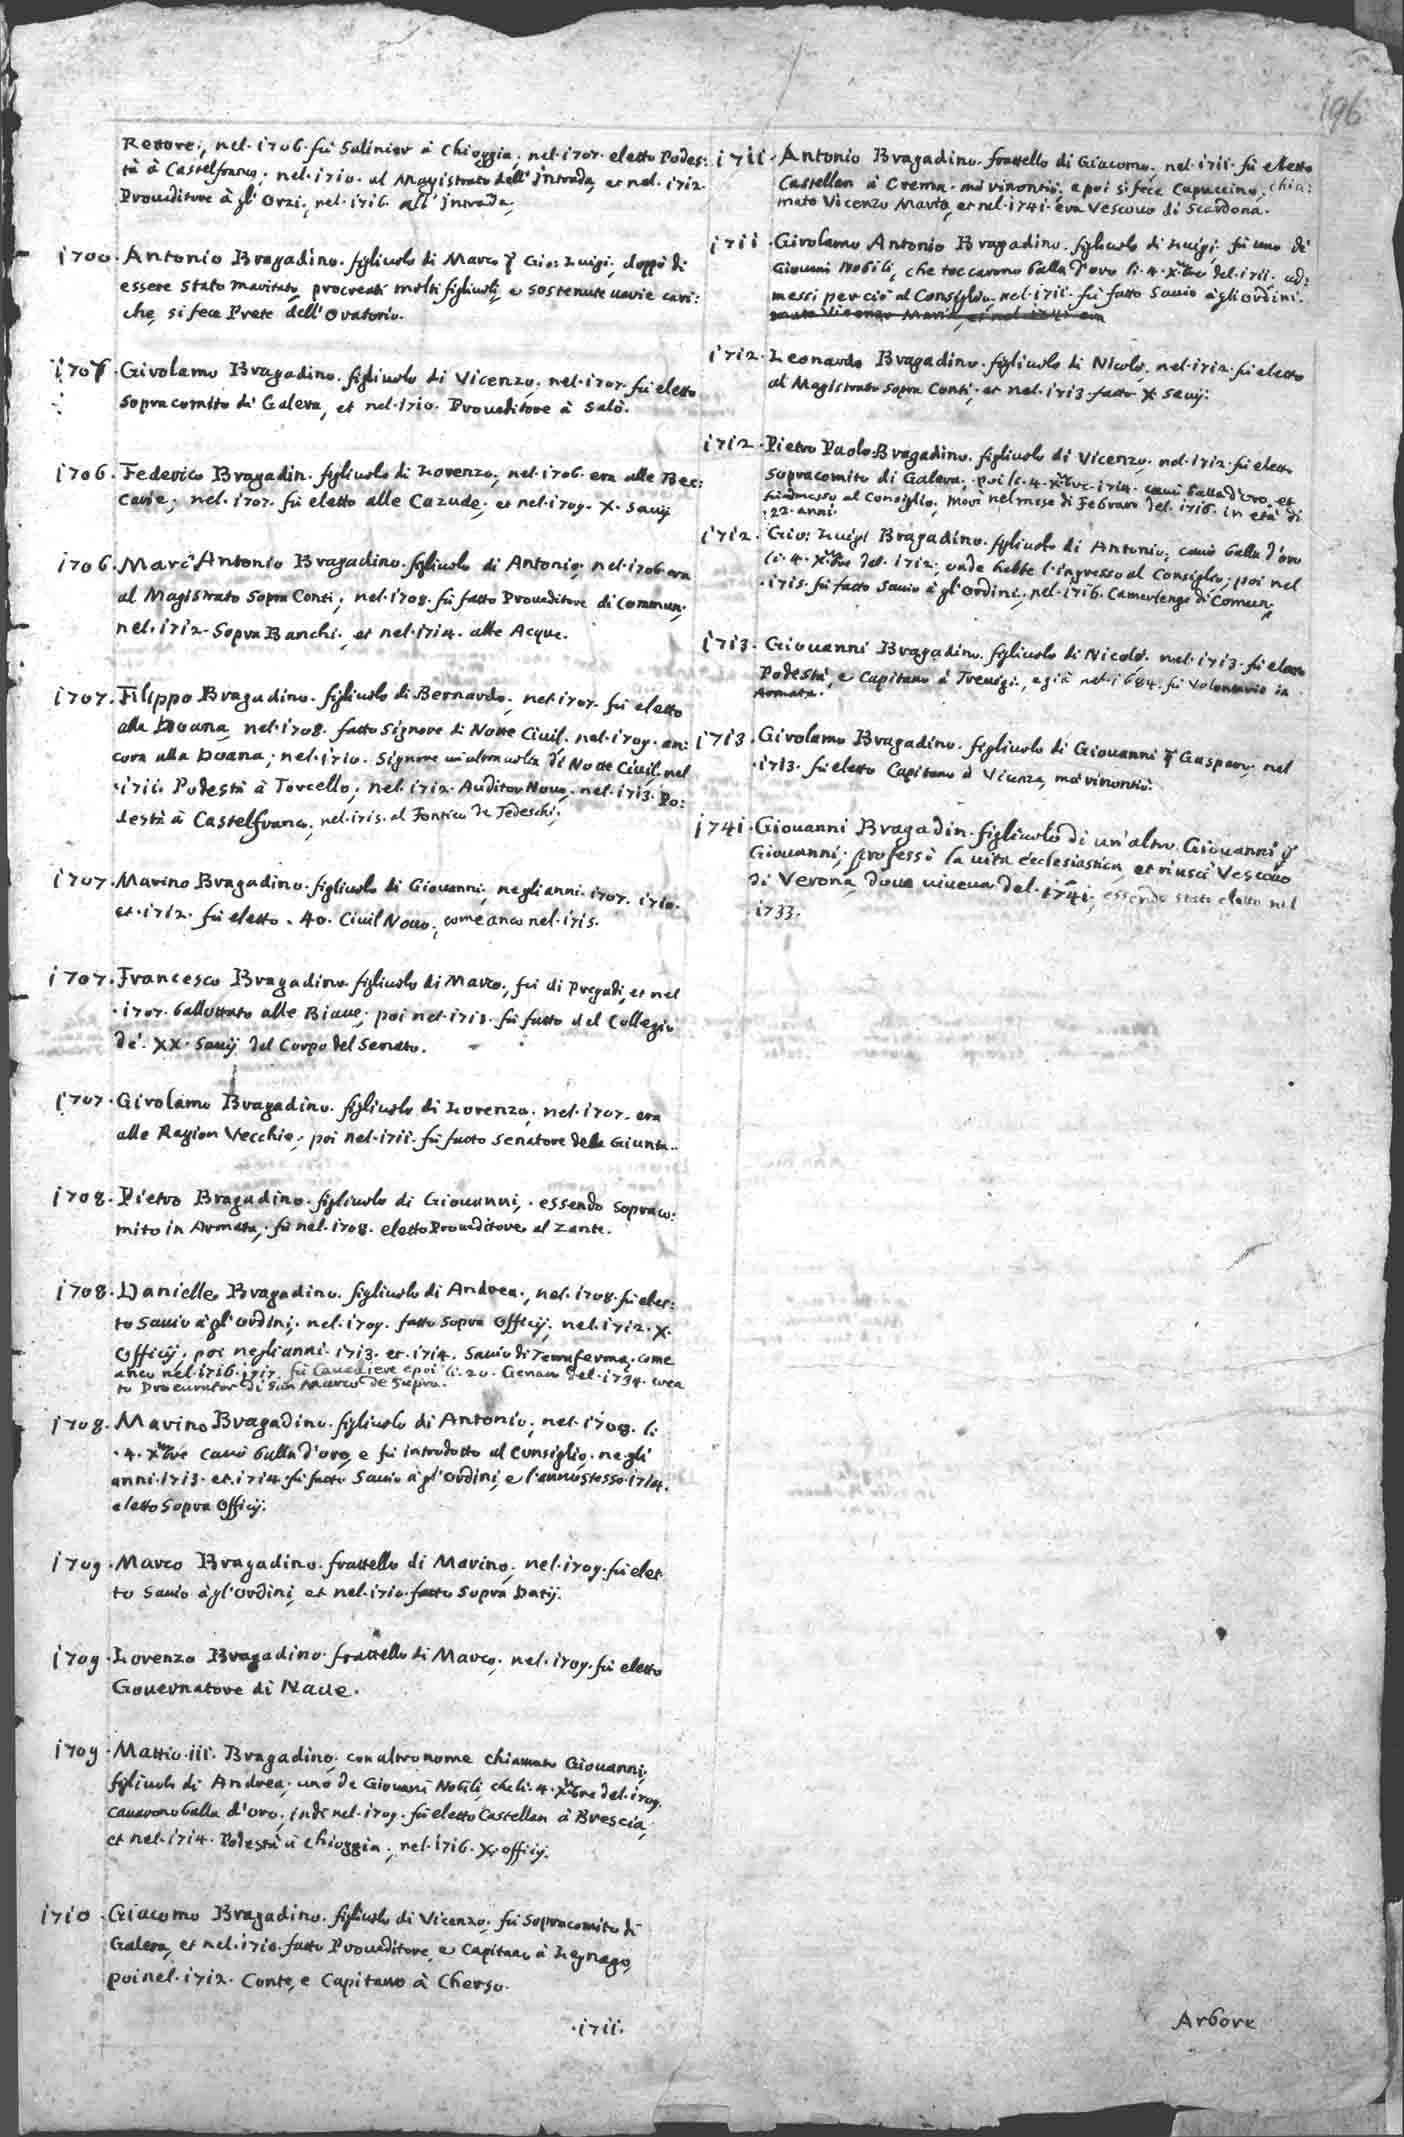 196
Rettore, nel. 1706. fù Salinier à Chioggia, nel. 1707. eletto Podes:
tà à Castelfranco, nel. 1710. al Magistrato dell' Intrada, et nel. 1712.
Proueditore à gl' Orzi, nel. 1716. all' Intrada,
1700. Antonio Bragadino. figliuolo di Marco q. Gio: Luigi, doppò di
essere stato maritato, procreati molti figliuoli, e sostenute uarie cari:
che, si fece Prete dell' Oratorio.
1707. Girolamo Bragadino. figliuolo di Vicenzo, nel. 1707. fù eletto
sopracomito di Galera, et nel. 1710. Proueditore à Salò.
1706. Federico Bragadin. figliuolo di Lorenzo, nel. 1706. era alle Bec:
carie, nel. 1707. fù eletto alle Cazude, et nel. 1709. X. Sauij
1706. Marc' Antonio Bragadino. figliuolo di Antonio, nel. 1706 era
al Magistrato sopra Conti, nel. 1708. fù fatto Proueditore di Commun,
nel. 1712. Sopra Banchi, et nel. 1714. alle Acque.
1707. Filippo Bragadino. figliuolo di Bernardo, nel. 1707. fù eletto
alla Doana, nel. 1708. fatto Signore di Notte Ciuil. nel. 1709. an:
cora alla Doana, nel. 1710. Signore un'altra uolta di Notte Ciuil, nel
.1711. Podestà à Torcello, nel. 1712. Auditor Nouo, nel. 1713. Po:
destà à Castelfranco, nel. 1715. al Fontico de Tedeschi,
1707. Marino Bragadino. figliuolo di Giouanni, negli anni. 1707. 1710.
et. 1712. fù eletto. 40. Ciuil Nouo, come anco nel. 1715.
1707. Francesco Bragadino figliuolo di Marco, fù di Pregadi, et nel
.1707. ballottato alle Biaue, poi nel. 1713. fù fatto del Collegio
de'. XX. Sauij del Corpo del Senato.
1707. Girolamo Bragadino. figliuolo di Lorenzo, nel. 1707. era
alle Ragion Vecchie, poi nel. 1711. fù fatto Senatore della Giunta.
1708. Pietro Bragadino. figliuolo di Giouanni, essendo sopraco:
mito in Armata, fù nel. 1708. eletto Proueditore al Zante.
1708. Danielle Bragadino. figliuolo di Andrea, nel. 1708. fù elet:
to Sauio à gl' Ordini, nel. 1709. fatto sopra Officij, nel. 1712. X.
Officij, poi negli anni. 1713. et. 1714. Sauio di Terraferma, come
anco nel. 1716. 1717. fù Caualiere e poi li. 20. Genaro del. 1734. crea
to Procurator di San Marco de Supra.
1708. Marino Bragadino. figliuolo di Antonio, nel. 1708. li
.4. Xmbre cauò balla d'oro, e fù introdotto al Consiglio. negli
anni. 1713. et. 1714. fù fatto Sauio à gl' Ordini, e l'anno stesso. 1714.
eletto Sopra Officij.
1709. Marco Bragadino. frattello di Marino, nel. 1709. fù elet
to Sauio à gl' Ordini, et nel. 1710. fatto Sopra Datij.
1709. Lorenzo Bragadino. frattello di Marco, nel. 1709. fù eletto
Gouernatore di Naue.
1709. Mattio. iii. Bragadino, con altro nome chiamato Giouanni,
figliuolo di Andrea, uno de Giouani Nobili, che li. 4. Xmbre del. 1709.
cauarono balla d'oro, indi nel. 1709. fù eletto Castellan à Brescia,
et nel. 1714. Podestà à Chioggia, nel. 1716. X. officij.
1710. Giacomo Bragadino. figliuolo di Vicenzo, fù sopracomito di
Galera, et nel. 1710. fatto Proueditore, e Capitano à Legnago,
poi nel. 1712. Conte, e Capitano à Cherso.
.1711.
1711. Antonio Bragadino. frattello di Giacomo, nel. 1711. fù eletto
Castellan à Crema. mà rinontiò, e poi si fece Capuccino, chia:
mato Vicenzo Maria, et nel. 1741. era Vescouo di Scardona.
1711. Girolamo Antonio Bragadino. figliuolo di Luigi, fù uno di
Giouani Nobili, che toccarono balla d'oro li. 4. Xmbre del. 1711. ad:
messi perciò al Consiglio, nel. 1711. fù fatto Sauio à gli Ordini.
mato Vicenzo Maria, et nel 1741 era
1712. Leonardo Bragadino. figliuolo di Nicolò, nel. 1712. fù eletto
al Magistrato sopra Conti, et nel. 1713. fatto X Sauij.
1712. Pietro Paolo Bragadino. figliuolo di Vicenzo, nel. 1712. fù eletto
sopracomito di Galera, poi li. 4. Xmbre. 1714. cauò balla d'oro, et
fù admesso al Consiglio, morì nel mese di Febraro del. 1716. in età di
.22. anni.
1712. Gio: Luigi Bragadino. figliuolo di Antonio, cauò balla d'oro
li. 4. Xmbre del. 1712, onde hebbe l'ingresso al Consiglio, poi nel
.1715. fù fatto Sauio à gl' Ordini, nel. 1716. Camerlengo di Comun,
1713. Giouanni Bragadino. figliuolo di Nicolò. nel. 1713. fù eletto
Podestà, e Capitano à Treuigi, e già nel. 1684. fù Volontario in
Armata.
1713. Girolamo Bragadino. figliuolo di Giouanni q. Gasparo, nel
.1713. fù eletto Capitano à Vicenza, mà rinontiò.
1741. Giouanni Bragadin. figliuolo di un' altro Giouanni q.
Giouanni, professò la uita ecclesiastica, et riuscì Vescouo
di Verona, doue uiueua del. 1741, essendo stato eletto nel
1733.
Arbore